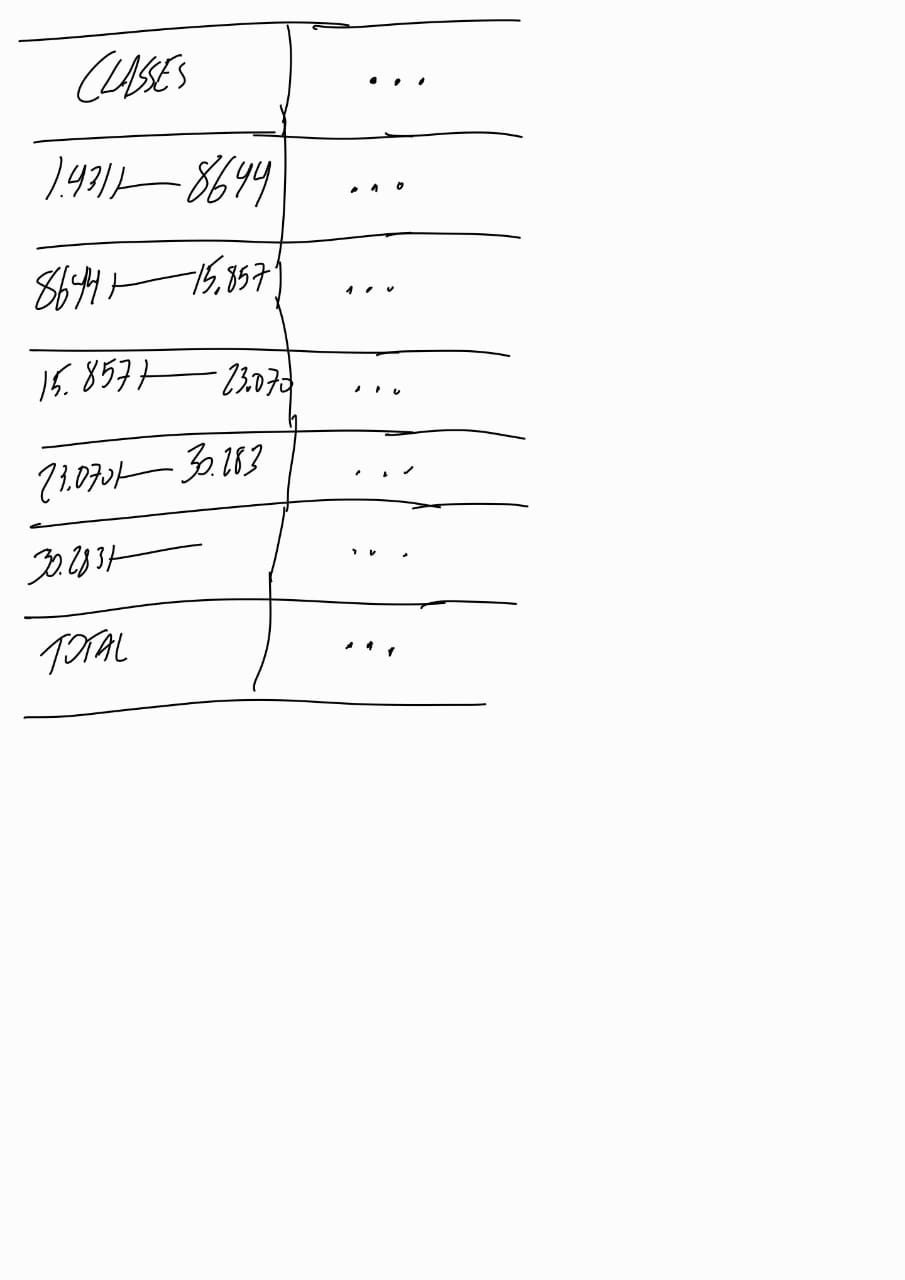 CLASSES ...
1.431 ⊢ 8644 ...
8644 ⊢ 15.857 ...
15.857 ⊢ 23.070 ...
23.070 ⊢ 30.283 ...
30.283 ⊢ ...
TOTAL ...